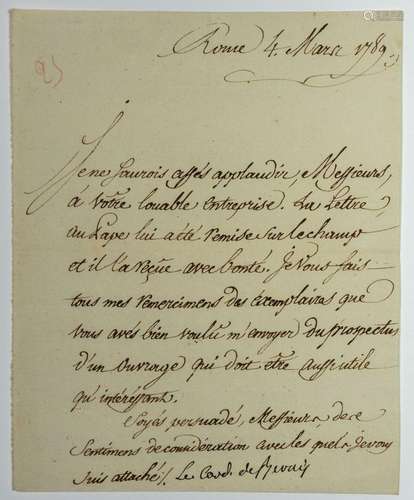 Rome 4. Mars 1789.
Je ne saurois assés applaudir, Messieurs,
à votre louable entreprise. La Lettre
au Pape lui a été remise sur le champ
et il l'a reçue avec bonté. Je vous fais
tous mes remercimens des exemplaires que
vous avés bien voulû m'envoyer du prospectus
d'un ouvrage qui doit être aussi utile
qu'intéressant.
Soyés persuadé, Messieurs, des
sentimens de considération avec les quels je vous
suis attaché. Le Card. de Bernis